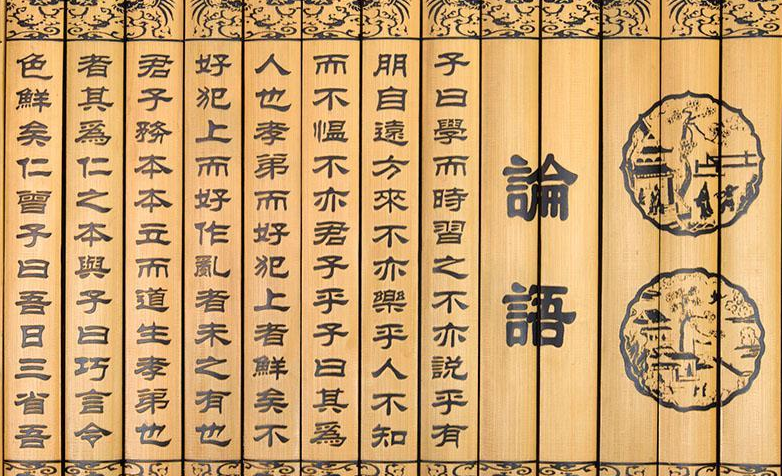 論語
子曰學而時習之不亦説乎有
朋自遠方來不亦樂乎人不知
而不愠不亦君子乎子曰其為
人也孝弟而好犯上者鮮矣不
好犯上而好作亂者未之有也
君子務本本立而道生孝弟也
者其為仁之本與子曰巧言令
色鮮矣仁曾子曰吾日三省吾